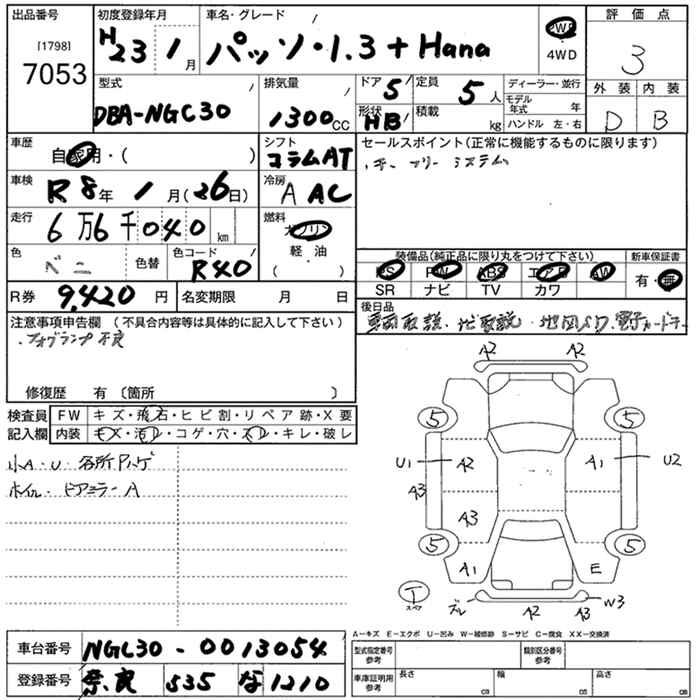 出品番号
[1798]
7053
初度登録年月
H23 1 月
車名・グレード
パッソ・1.3 + Hana
FWD
4WD
評価点
3
型式
DBA-NGC30
排気量
1300 CC
ドア 5
形状 HB
定員 5 人
積載 kg
ディーラー・並行
モデル年式 年
ハンドル 左・右
外装 内装
D B
車歴
自家用・( )
シフト
コラムAT
車検
R8年 1 月(26日)
冷房
A AC
走行
6万6千040 km
燃料
ガソリン
軽・油
( )
色
ベニ
色替
色コード
R40
R券 9,420 円
名変期限 月 日
セールスポイント(正常に機能するものに限ります)
・キーフリーシステム
装備品(純正品に限り丸をつけて下さい)
PS PW ABS エアB AW
SR ナビ TV カワ
新車保証書
有・無
後日品
車両取説・ナビ取説・地図ソフト・電子カードキー
注意事項申告欄(不具合内容等は具体的に記入して下さい)
・フォグランプ不良
修復歴 有〔箇所 〕
検査員
記入欄
FW キズ・飛石・ヒビ割・リペア跡・X要
内装 キズ・汚レ・コゲ・穴・スレ・キレ・破レ
小A・U・各所ハゲ
ホイル・ドアミラーA
A2 A2
5 5
U1 A2 A1 U2
A3
A3
5 5
A1 E
T
スペア
ズレ A2 A3 W3
A-キズ E-エクボ U-凹み W-補修跡 S-サビ C-腐食 XX-交換済
型式指定番号
参考
類別区分番号
参考
車庫証明用
参考
長さ cm
幅 cm
高さ cm
車台番号 NGC30-0013054
登録番号 奈良 535 な 1210